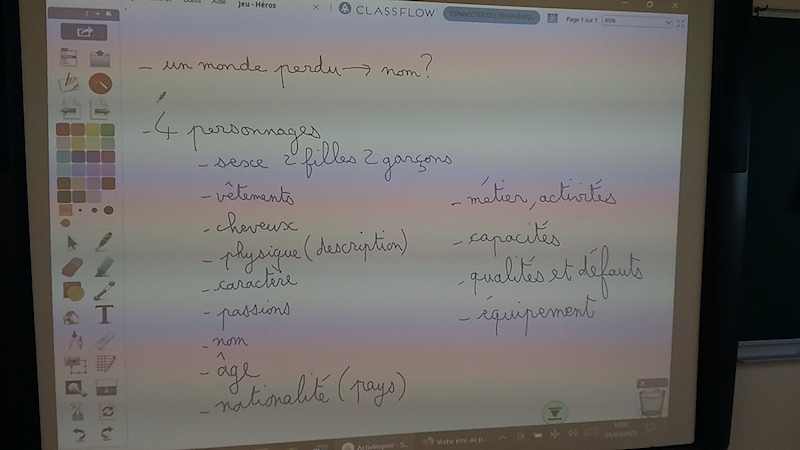 Aide
Jeu - Héros
CLASSFLOW
Page 1 sur 1
80%
- un monde perdu → nom?
- 4 personnages
- sexe 2 filles 2 garçons
- vêtements
- cheveux
- physique (description)
- caractère
- passions
- nom
- âge
- nationalité (pays)
- métier, activités
- capacités
- qualités et défauts
- équipement
T
ActivInspire - S...
Verbe être au p...